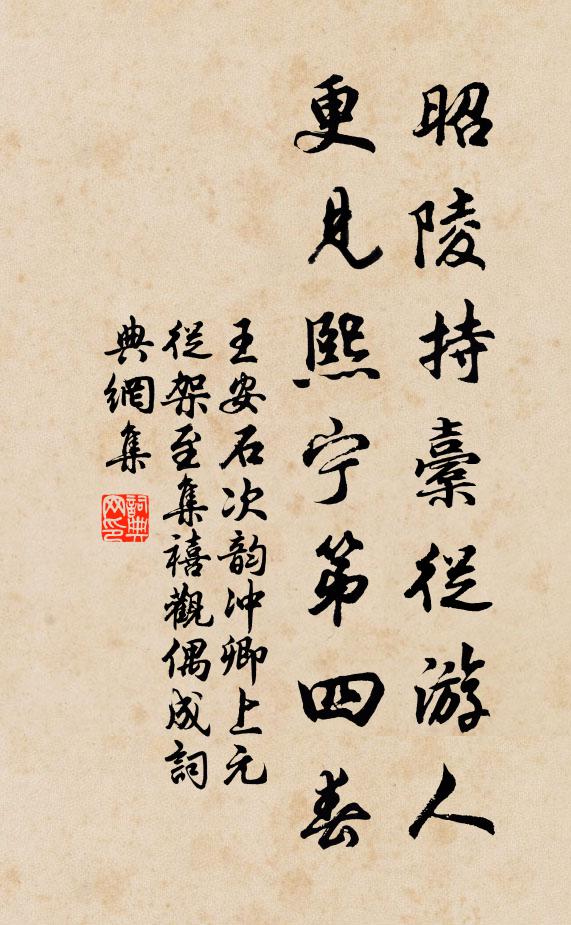 昭陵持橐從游人
更見熙宁第四春
王安石次韵冲卿上元
從架至集禧觀偶成詞
典網集
詞典網印